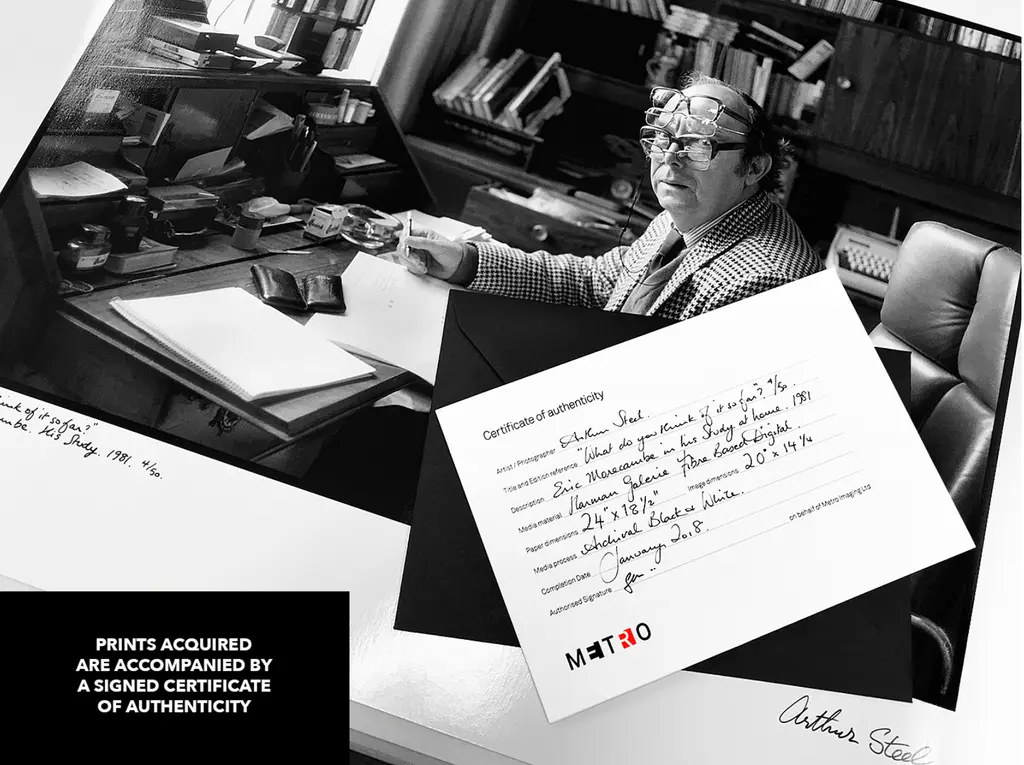 ink of it so far?"
mbe. His Study. 1981. 4/50.
Certificate of authenticity
Artist / Photographer Arthur Steel.
Title and Edition reference "What do you think of it so far?" 4/50.
Description Eric Morecambe in his Study at home. 1981
Media material Harman Galerie Fibre Based Digital.
Paper dimensions 24" x 18½" Image dimensions 20" x 14¼
Media process Archival Black & White.
Completion Date January 2018.
Authorised Signature on behalf of Metro Imaging Ltd
METRO
PRINTS ACQUIRED
ARE ACCOMPANIED BY
A SIGNED CERTIFICATE
OF AUTHENTICITY
Arthur Steel